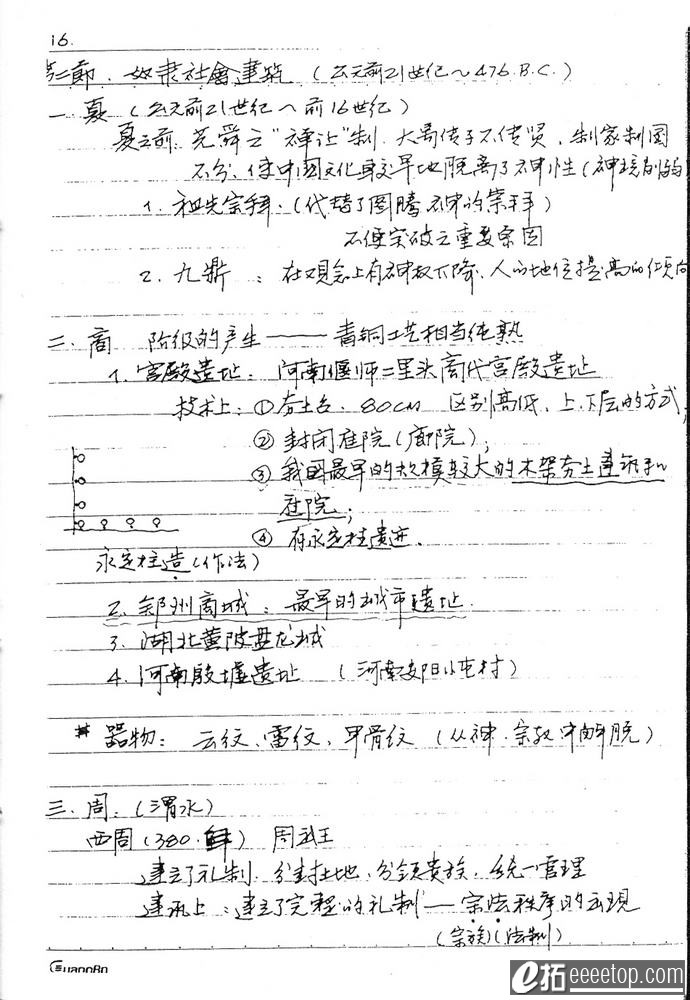 16.
第二節. 奴隶社會建筑 (公元前21世纪~476.B.C.)
一 夏 (公元前21世纪~前16世纪)
夏之前. 尧舜之"禅让"制. 大禹传子不传贤. 制家制国
不分. 使中国文化较早地脱离了神性(神
1. 祖先宗拜. (代替了图腾 神的崇拜)
不便突破之重要原因
2. 九鼎 : 在观念上有神权下降. 人的地位提高的倾向
二. 商 阶级的产生——青铜工艺相当纯熟
1. 宫殿遗址: 河南偃师二里头商代宫殿遗址
技术上: ①夯土台. 80cm 区别高低. 上. 下层的方式;
② 封闭庭院(廊院);
③ 我国最早的规模较大的木架夯土建筑和
庭院;
④ 存永定柱遗迹.
永定柱造(作法)
2. 郑州商城: 最早的城市遗址.
3. 湖北黄陂盘龙城
4. 河南殷墟遗址 (河南安阳小屯村)
# 器物: 云纹、雷纹、甲骨纹 (从神. 宗教中解脱)
三. 周. (渭水)
西周(380. ) 周武王
建立了礼制. 分封土地. 分领贵族. 统一管理
建筑上: 建立了完整的礼制——宗法秩序的出现
(宗族)(法制)
GuangBo
e拓 eeeetop.com